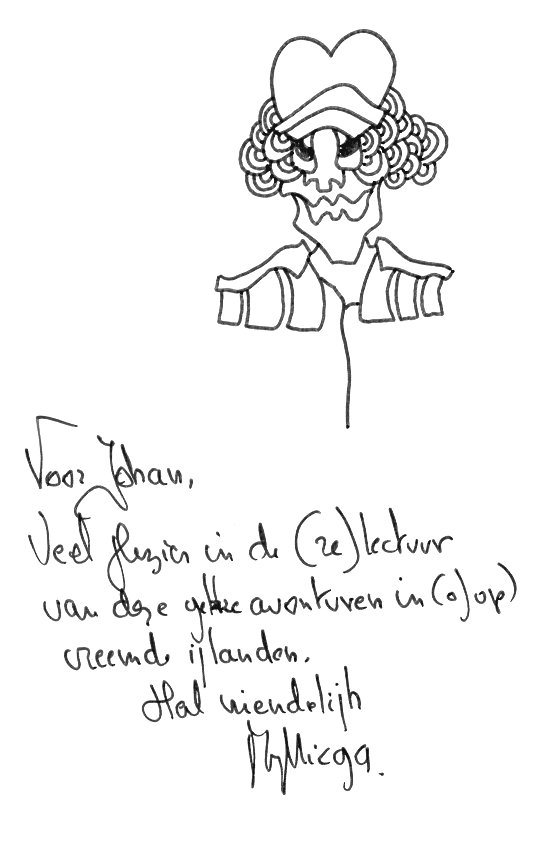 Voor Johan,
Veel plezier in de (re)lectuur
van deze gekke avonturen in (o)op)
vreemde ijlanden.
Hal vriendelijk